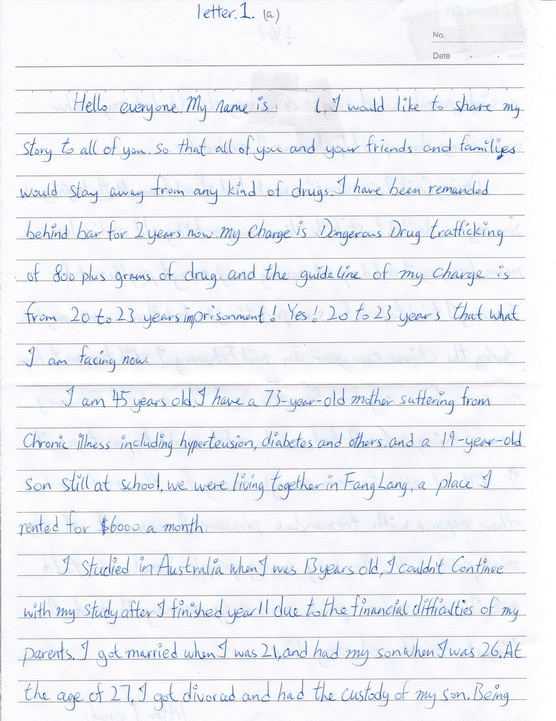 letter.1. (a)
No.
Date
Hello everyone. My name is I would like to share my
story to all of you. so that all of you and your friends and families
would stay away from any kind of drugs. I have been remanded
behind bar for 2 years now. my charge is Dangerous Drug trafficking
of 800 plus grams of drug. and the guideline of my charge is
from 20 to 23 years imprisonment! Yes! 20 to 23 years that what
I am facing now.
I am 45 years old. I have a 73-year-old mother suffering from
Chronic illness including hypertension, diabetes and others. and a 19-year-old
son still at school. we were living together in Fang Lang, a place I
rented for $6000 a month.
I studied in Australia when I was 13 years old, I couldn't Continue
with my study after I finished year 11 due to the financial difficulties of my
parents. I got married when I was 21, and had my son when I was 26. At
the age of 27, I got divorced and had the custody of my son. Being